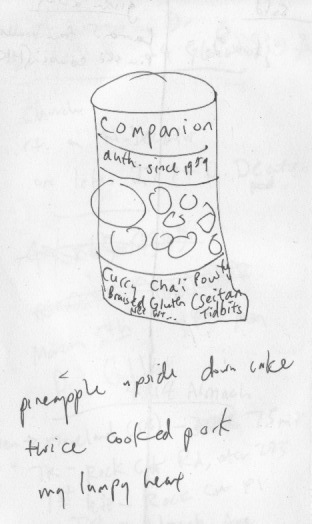 Companion
auth. since 1959
Curry Cha'i Pow Yu
Braised Gluten (Seitan
Net Wt... Tidbits
pineapple upside down cake
twice cooked pork
my lumpy heart